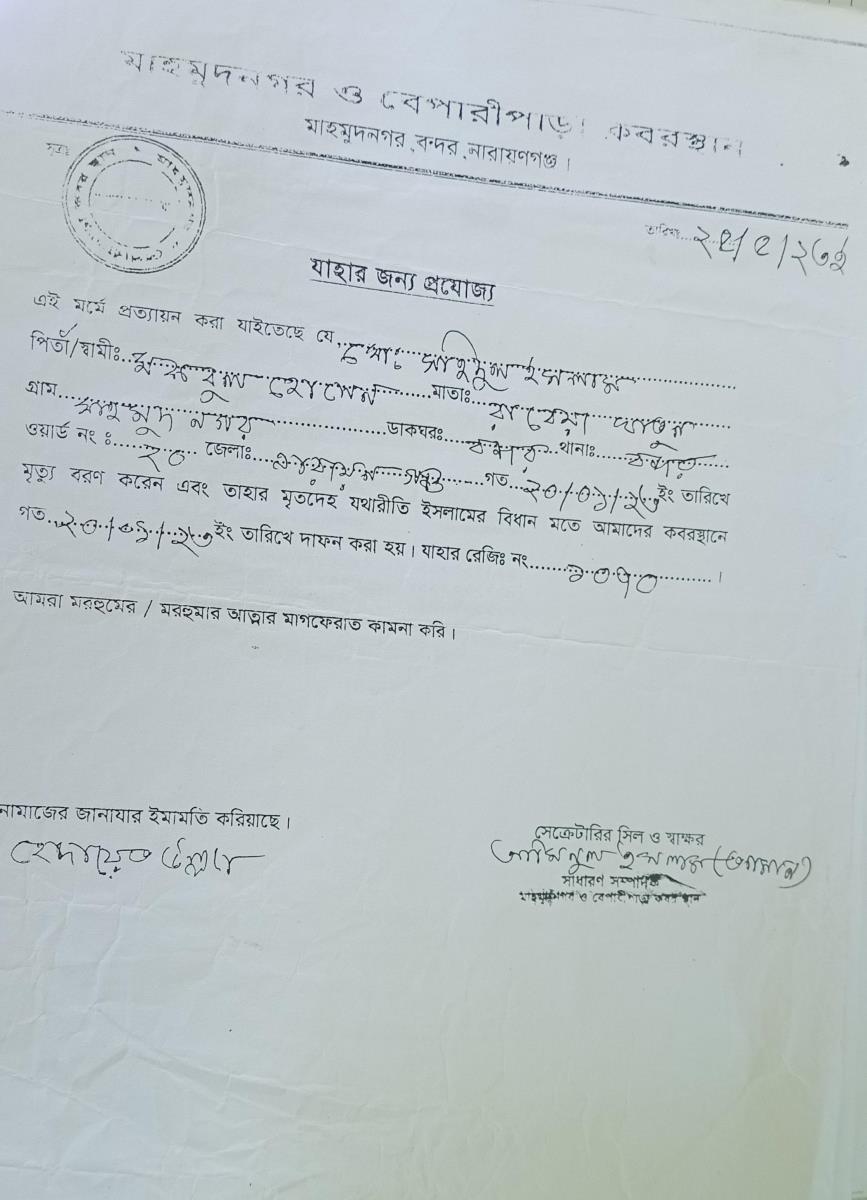 মাহমুদনগর ও বেপারীপাড়া কবরস্থান
মাহমুদনগর, বন্দর, নারায়ণগঞ্জ।
সূত্রঃ
তারিখঃ
যাহার জন্য প্রযোজ্য
এই মর্মে প্রত্যায়ন করা যাইতেছে যে, মোঃ সহিদুল ইসলাম
পিতা/স্বামীঃ মকবুল হোসেন মাতাঃ রাবেয়া খাতুন
গ্রাম মাহমুদনগর ডাকঘরঃ বন্দর থানাঃ বন্দর
ওয়ার্ড নং ঃ ২০ জেলাঃ নারায়ণগঞ্জ গত ইং তারিখে
মৃত্যু বরণ করেন এবং তাহার মৃতদেহ যথারীতি ইসলামের বিধান মতে আমাদের কবরস্থানে
গত ইং তারিখে দাফন করা হয়। যাহার রেজিঃ নং ১০৭০ ।
আমরা মরহুমের / মরহুমার আত্নার মাগফেরাত কামনা করি।
নামাজের জানাযার ইমামতি করিয়াছে।
সেক্রেটারির সিল ও স্বাক্ষর
হেদায়েত উল্লাহ
আমিনুল ইসলাম
সাধারণ সম্পাদক
মাহমুদনগর ও বেপারীপাড়া কবরস্থান